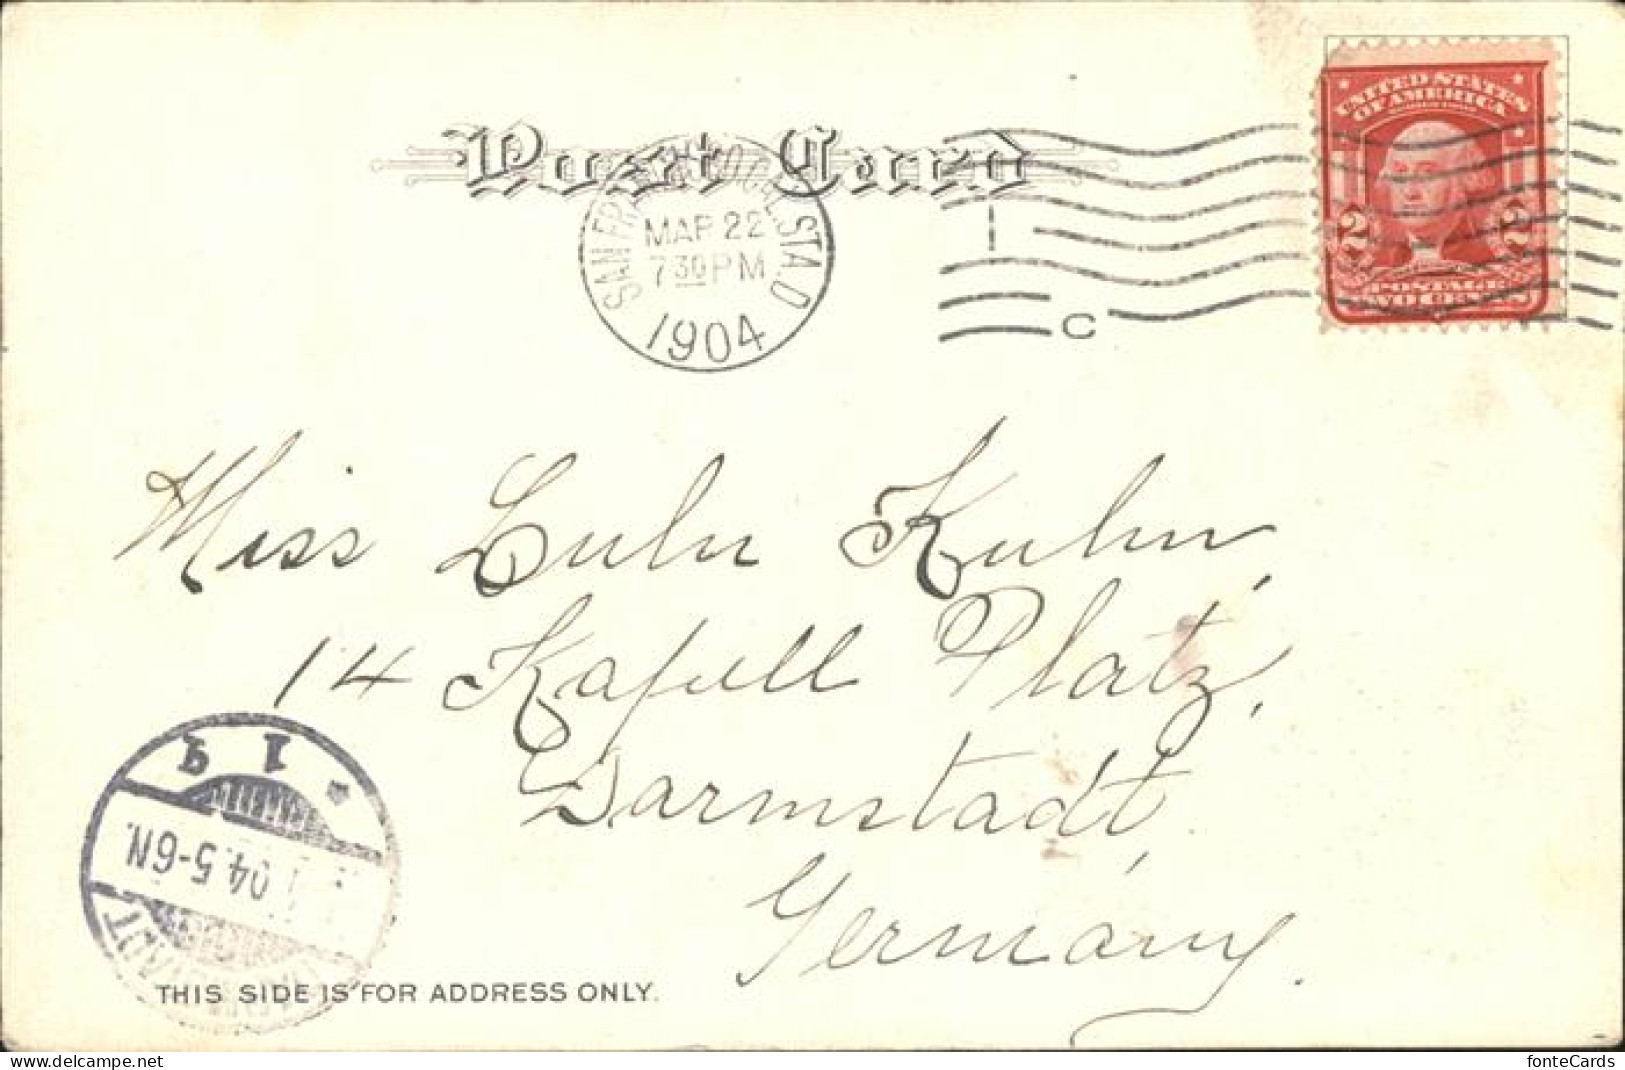 UNITED STATES
OF AMERICA
Post Card
SAN FRANCISCO CAL. STA. D
MAR 22
7 30 PM
1904
2 2
POSTAGE
TWO CENTS
C
Miss Lulu Kuhn,
14 Kapell Platz,
Darmstadt
Germany.
DARMSTADT
04.5-6N.
* 1 g
THIS SIDE IS FOR ADDRESS ONLY.
www.delcampe.net
fonteCards